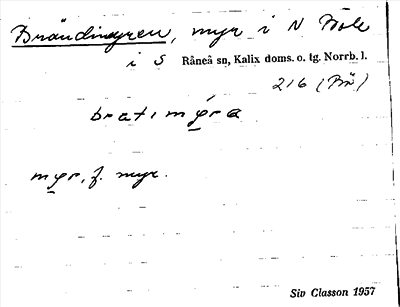 Brändimyren, myr i N Böle
i S Råneå sn, Kalix doms. o. tg. Norrb. l.
216 (Bä)
bratımyra
myr, f. myr.
Siv Classon 1957